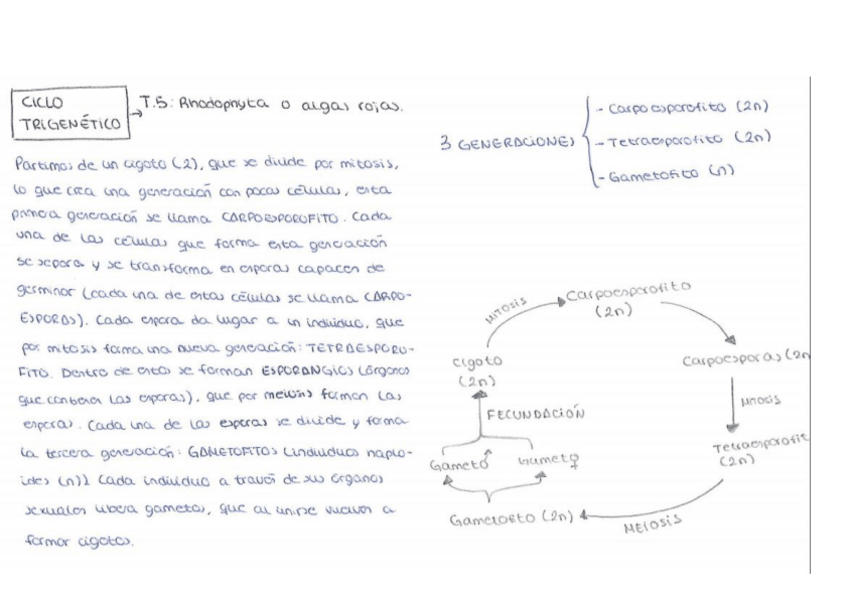 CICLO
TRIGENÉTICO
T.5: Rhodophyta o algas rojas.
Partimos de un cigoto (2), que se divide por mitosis,
lo que crea una generación con pocas células, esta
primera generación se llama CARPOESPOROFITO. Cada
una de las células que forma esta generación
se separa y se transforma en esporas capaces de
germinar (cada una de estas células se llama CARPO-
ESPORAS). Cada espora da lugar a un individuo, que
por mitosis forma una nueva generación: TETRAESPORO-
FITO. Dentro de estos se forman ESPORANGIOS (órganos
que contienen las esporas), que por meiosis forman las
esporas. Cada una de las esporas se divide y forma
la tercera generación: GAMETOFITOS (individuos haplo-
ides (n)). Cada individuo a través de sus órganos
sexuales libera gametos, que al unirse vuelven a
formar cigotos.
3 GENERACIONES
- Carpoesporofito (2n)
- Tetraesporofito (2n)
- Gametofito (n)
MITOSIS
Carpoesporofito
(2n)
Carpoesporas (2n
MITOSIS
Tetraesporofit
(2n)
MEIOSIS
Gametofito (2n)
Gameto ♂
Gameto ♀
FECUNDACIÓN
Cigoto
(2n)